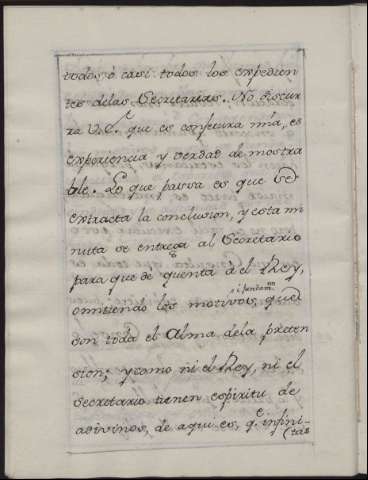 todos, ó casi todos los expedien
tes delas Secretarias. No discur
ra V.E. que es congetura mía, es
experiencia y verdad demostra
ble. Lo que pasa es que se
extracta la conclusion, y esta mi
nuta se entrega al Secretario
para que dè quenta à el Rey,
omitiendo los motivos, i fundam.tos que
son toda el Alma dela preten
sion; y como ni el Rey, ni el
secretario tienen espiritu de
adivinos, de aqui es, q.e infini-
tas